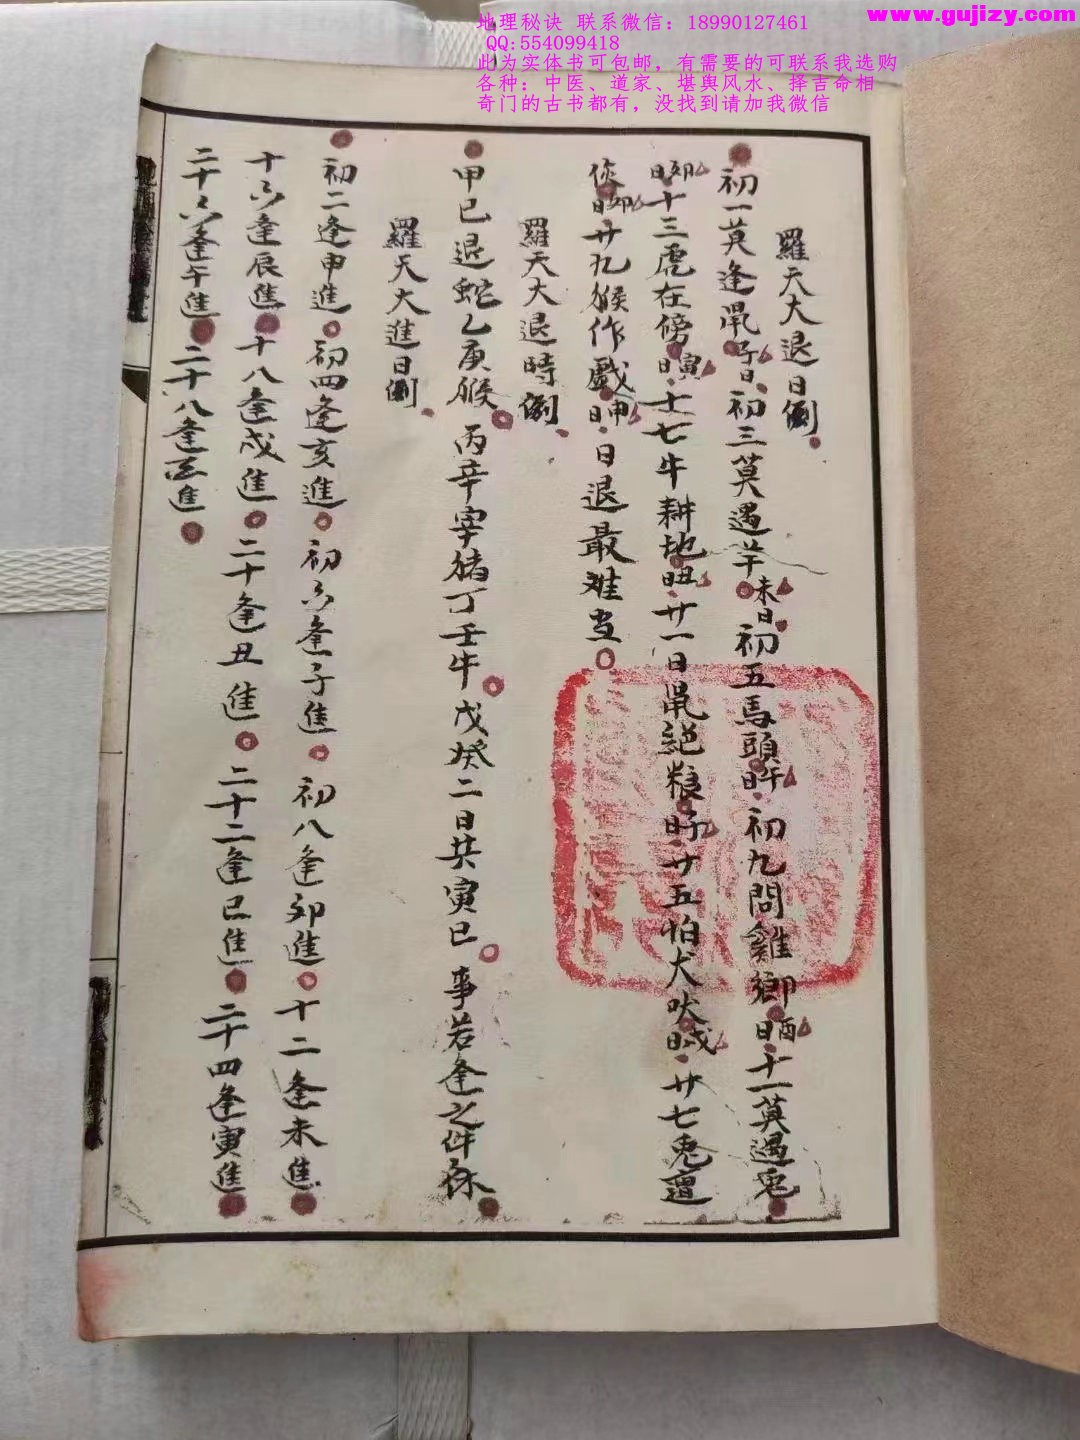 地理秘诀 联系微信：18990127461
QQ:554099418
此为实体书可包邮，有需要的可联系我选购
各种：中医、道家、堪舆风水、择吉命相
奇门的古书都有，没找到请加我微信
www.gujizy.com
羅天大退日例
初一莫逢鼠子日初三莫遇羊未日初五馬頭午日初九問雞鄉酉日十一莫遇兎
卯日十三虎在傍寅日十七牛耕地丑日廿一日鼠絕粮子日廿五怕犬吠戌日廿七兎遭
卯日廿九猴作戲申日日退最难当
羅天大退時例
甲已退蛇乙庚猴丙辛宰猪丁壬牛戊癸二日共寅已事若逢之件休
羅天大進日例
初二逢申進初四逢亥進初六逢子進初八逢卯進十二逢未進
十六逢辰進十八逢戌進二十逢丑進二十二逢已進二十四逢寅進
二十六逢午進二十八逢酉進